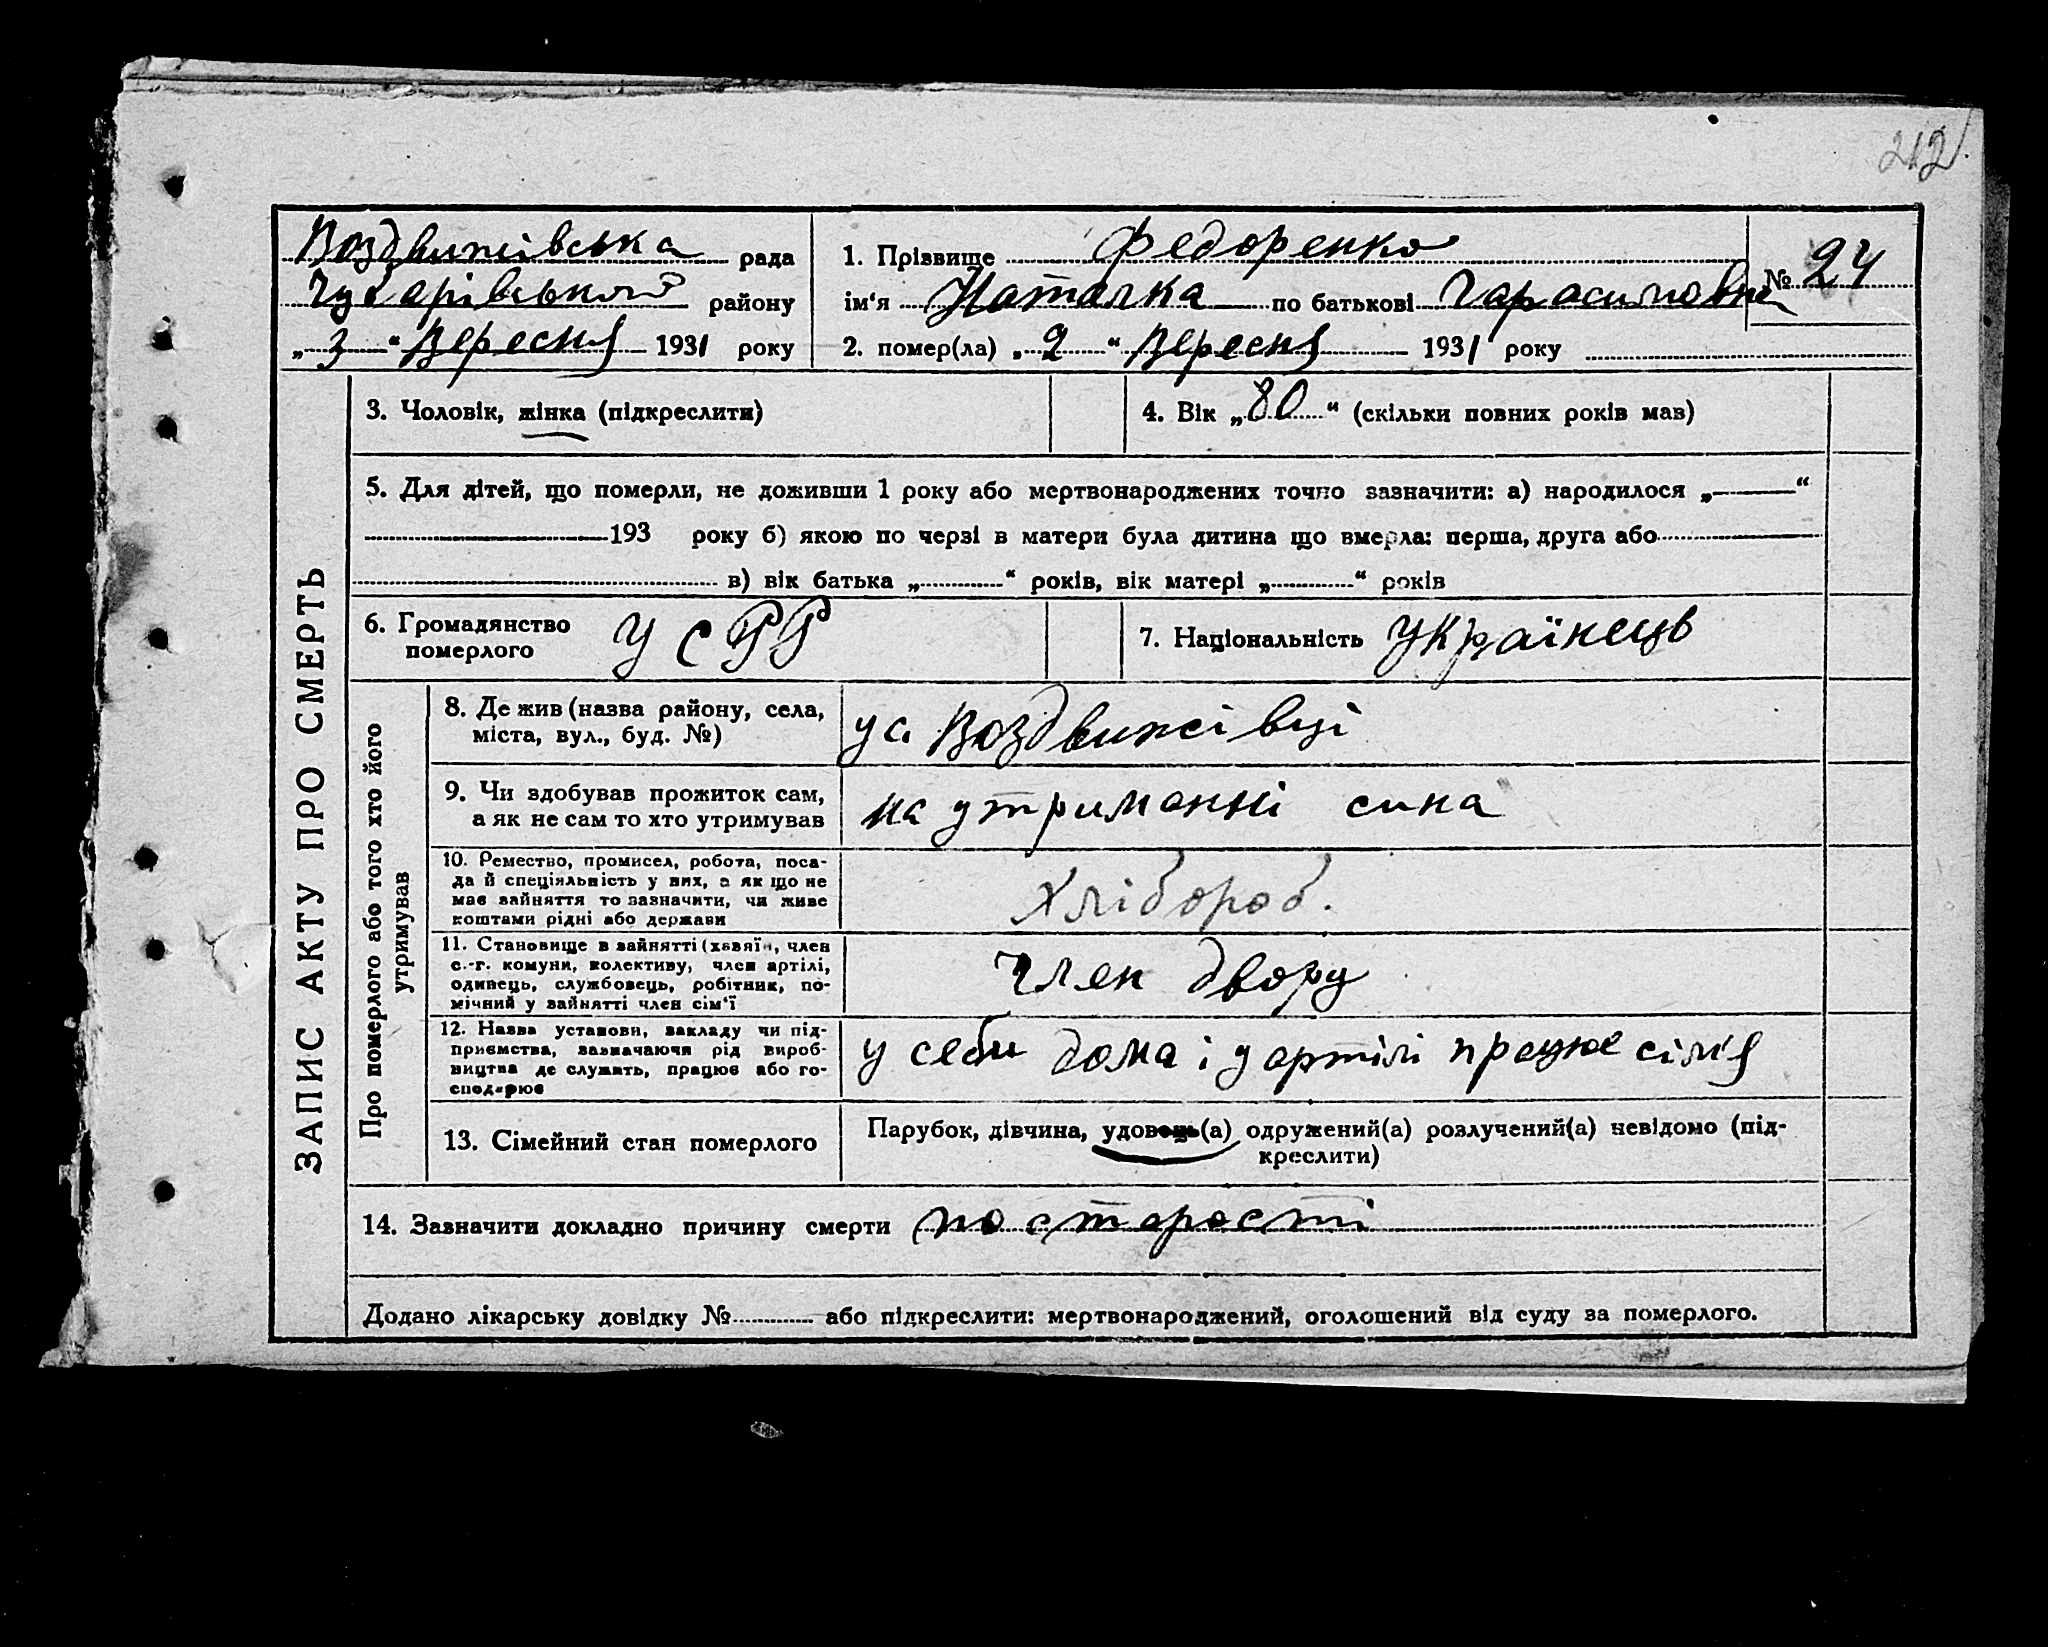 212
Воздвижівська рада
Чубарівського району
„3“ Вересня 1931 року
1. Прізвище Федоренко
ім‘я Наталка по батькові Гарасимовна
2. помер(ла) „2“ Вересня 1931 року
№ 24
ЗАПИС АКТУ ПРО СМЕРТЬ
3. Чоловік, жінка (підкреслити)
4. Вік „80“ (скільки повних років мав)
5. Для дітей, що померли, не доживши 1 року або мертвонароджених точно зазначити: а) народилося „——“
193 року б) якою по черзі в матери була дитина що вмерла: перша, друга або
в) вік батька „......“ років, вік матері „......“ років
6. Громадянство
померлого
УСРР
7. Національність Українець
Про померлого або того хто його
утримував
8. Де жив (назва району, села,
міста, вул., буд. №)
у с. Воздвижівці
9. Чи здобував прожиток сам,
а як не сам то хто утримував
на утриманні сина
10. Ремество, промисел, робота, поса-
да й спеціяльність у них, а як що не
має зайняття то зазначити, чи живе
коштами рідні або держави
Хлібороб.
11. Становище в зайнятті (хазяїн, член
с.-г. комуни, колективу, член артілі,
одинець, службовець, робітник, по-
мічний у зайнятті член сім‘ї
Член двору
12. Назва установи, закладу чи під-
приємства, зазначаючи рід вироб-
ництва де служить, працює або го-
сподарює
у себи дома і у артілі працює сімя
13. Сімейний стан померлого
Парубок, дівчина, удовець(а) одружений(а) розлучений(а) невідомо (під-
креслити)
14. Зазначити докладно причину смерти по старості
Додано лікарську довідку №........ або підкреслити: мертвонароджений, оголошений від суду за померлого.